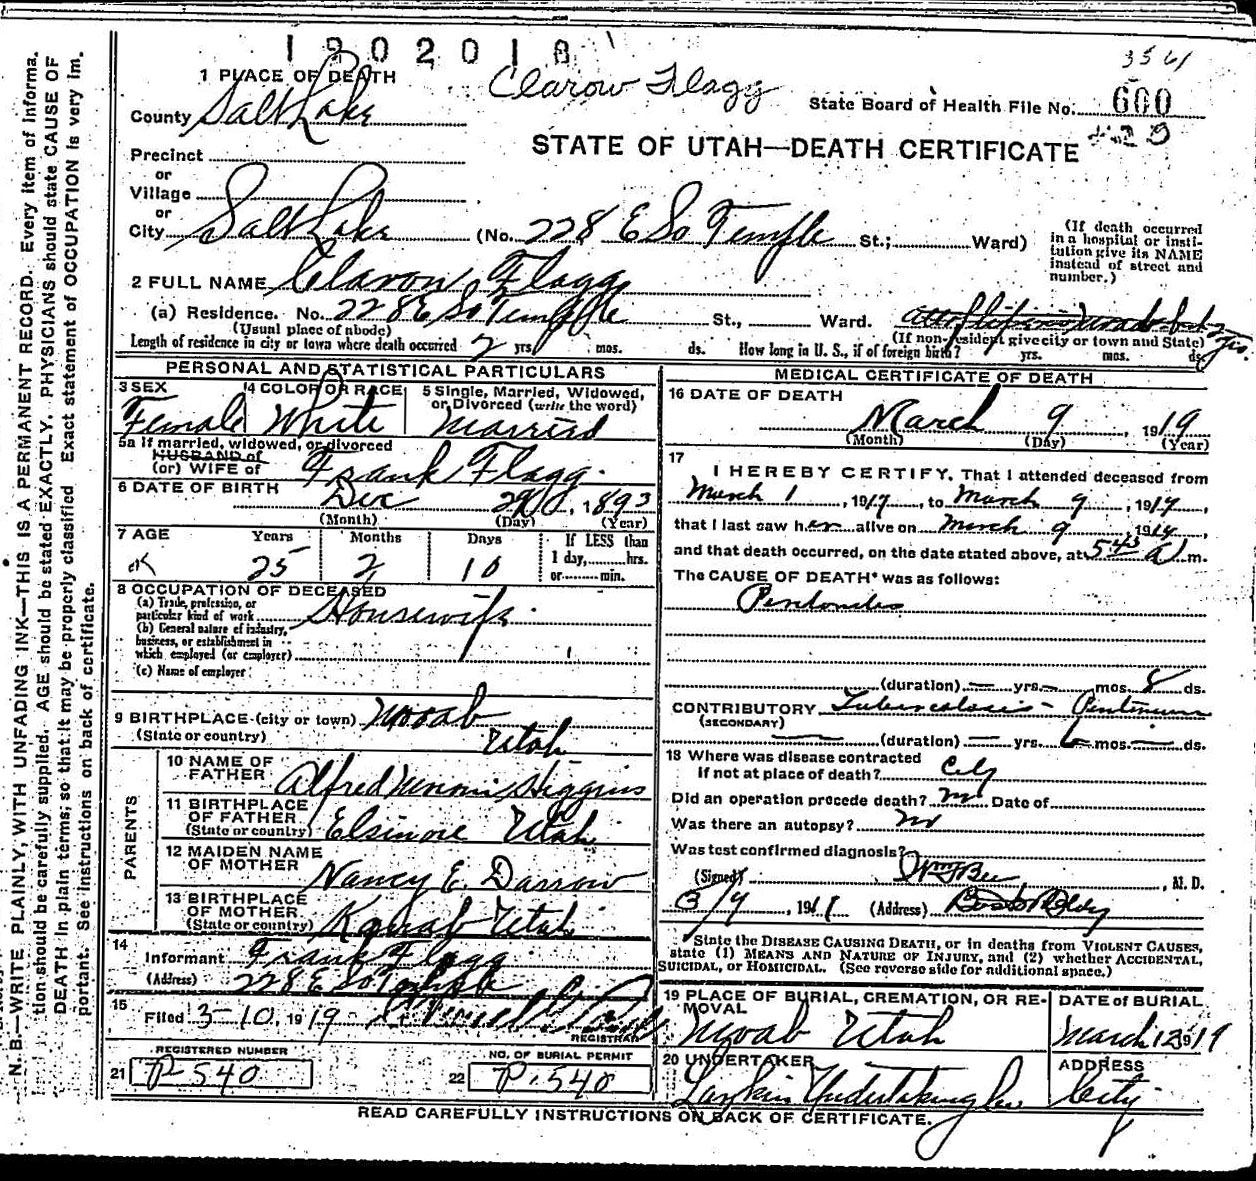 1902018
3561
1 PLACE OF DEATH
Clarow Flagg
County Salt Lake
State Board of Health File No. 600
Precinct
STATE OF UTAH—DEATH CERTIFICATE
or
Village
or
City Salt Lake (No. 228 E So Temple St.; Ward)
(If death occurred in a hospital or institution give its NAME instead of street and number.)
2 FULL NAME Claron Flagg
(a) Residence. No. 228 E So Temple St., Ward.
(Usual place of abode)
(If non-resident give city or town and State)
Length of residence in city or town where death occurred 2 yrs. mos. ds. How long in U. S., if of foreign birth? yrs. mos. ds.
PERSONAL AND STATISTICAL PARTICULARS
3 SEX Female
4 COLOR OR RACE White
5 Single, Married, Widowed, or Divorced (write the word) Married
5a If married, widowed, or divorced
HUSBAND of
(or) WIFE of Frank Flagg.
6 DATE OF BIRTH Dec 1893
(Month) (Day) (Year)
7 AGE Years Months Days If LESS than
25 2 10 1 day, hrs.
or min.
8 OCCUPATION OF DECEASED
(a) Trade, profession, or particular kind of work Housewife
(b) General nature of industry, business, or establishment in which employed (or employer)
(c) Name of employer
9 BIRTHPLACE (city or town) Moab
(State or country) Utah
PARENTS
10 NAME OF FATHER Alfred Higgins
11 BIRTHPLACE OF FATHER (State or country) Elsinore Utah
12 MAIDEN NAME OF MOTHER Nancy E. Darrow
13 BIRTHPLACE OF MOTHER (State or country) Kanab Utah
14
Informant Frank Flagg
(Address) 228 E So Temple
15
Filed 3-10, 1919
REGISTRAR
REGISTERED NUMBER
21 P 540
NO. OF BURIAL PERMIT
22 P. 540
MEDICAL CERTIFICATE OF DEATH
16 DATE OF DEATH
March 9, 1919
(Month) (Day) (Year)
17
I HEREBY CERTIFY, That I attended deceased from
March 1, 1919, to March 9, 1919,
that I last saw her alive on March 9 1919,
and that death occurred, on the date stated above, at 5 45 a m.
The CAUSE OF DEATH* was as follows:
Peritonitis
(duration) — yrs. — mos. 8 ds.
CONTRIBUTORY Tuberculosis - Peritoneum
(SECONDARY)
(duration) — yrs. 6 mos. — ds.
18 Where was disease contracted
if not at place of death? City
Did an operation precede death? no Date of
Was there an autopsy? no
Was test confirmed diagnosis?
(Signed) , M. D.
3/9, 191 (Address)
*State the DISEASE CAUSING DEATH, or in deaths from VIOLENT CAUSES, state (1) MEANS AND NATURE OF INJURY, and (2) whether ACCIDENTAL, SUICIDAL, or HOMICIDAL. (See reverse side for additional space.)
19 PLACE OF BURIAL, CREMATION, OR REMOVAL
Moab Utah
DATE of BURIAL
March 12 1919
20 UNDERTAKER
Larkin Undertaking Co
ADDRESS
City
READ CAREFULLY INSTRUCTIONS ON BACK OF CERTIFICATE.
N. B.—WRITE PLAINLY, WITH UNFADING INK—THIS IS A PERMANENT RECORD. Every item of information should be carefully supplied. AGE should be stated EXACTLY. PHYSICIANS should state CAUSE OF DEATH in plain terms, so that it may be properly classified. Exact statement of OCCUPATION is very important. See instructions on back of certificate.